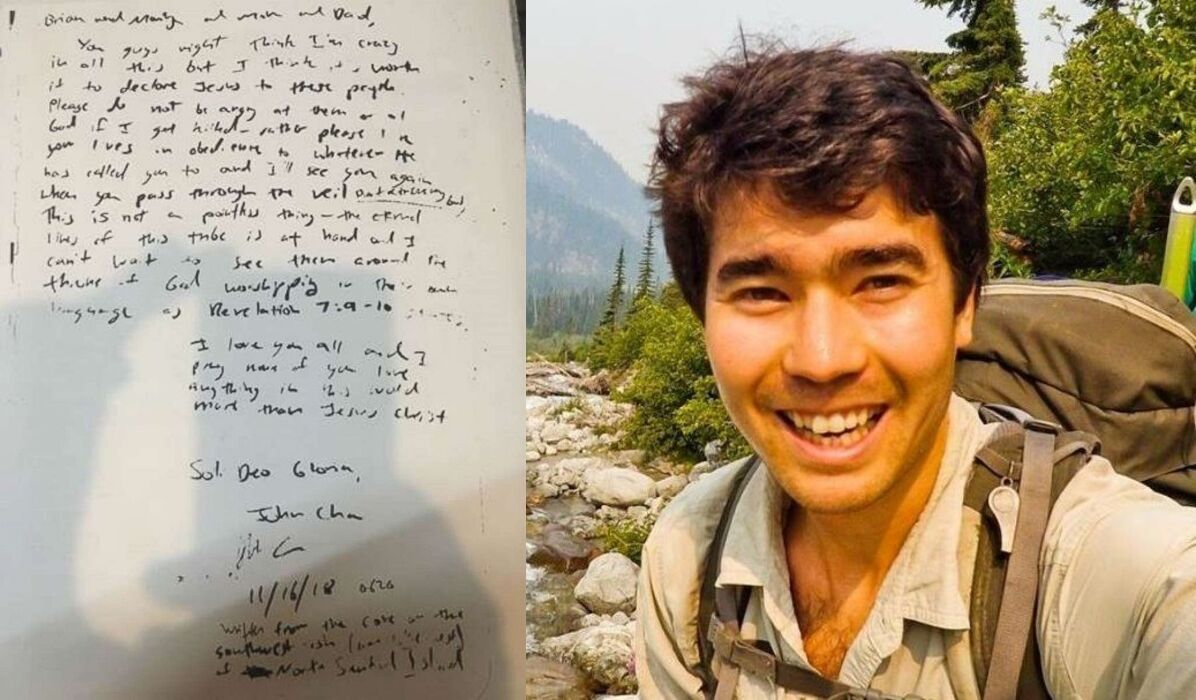 Brian and Marilyn and Mom and Dad,
You guys might think I'm crazy
in all this but I think it's worth
it to declare Jesus to these people.
Please do not be angry at them or at
God if I get killed - rather please live
your lives in obedience to whatever He
has called you to and I'll see you again
when you pass through the veil
This is not a pointless thing - the eternal
lives of this tribe is at hand and I
can't wait to see them around the
throne of God worshipping in their own
language as Revelation 7:9-10 states.
I love you all and I
pray none of you love
anything in this world
more than Jesus Christ
Soli Deo Gloria,
John Chau
11/16/18 0620
written from the cove on the
southwest
of North Sentinel Island